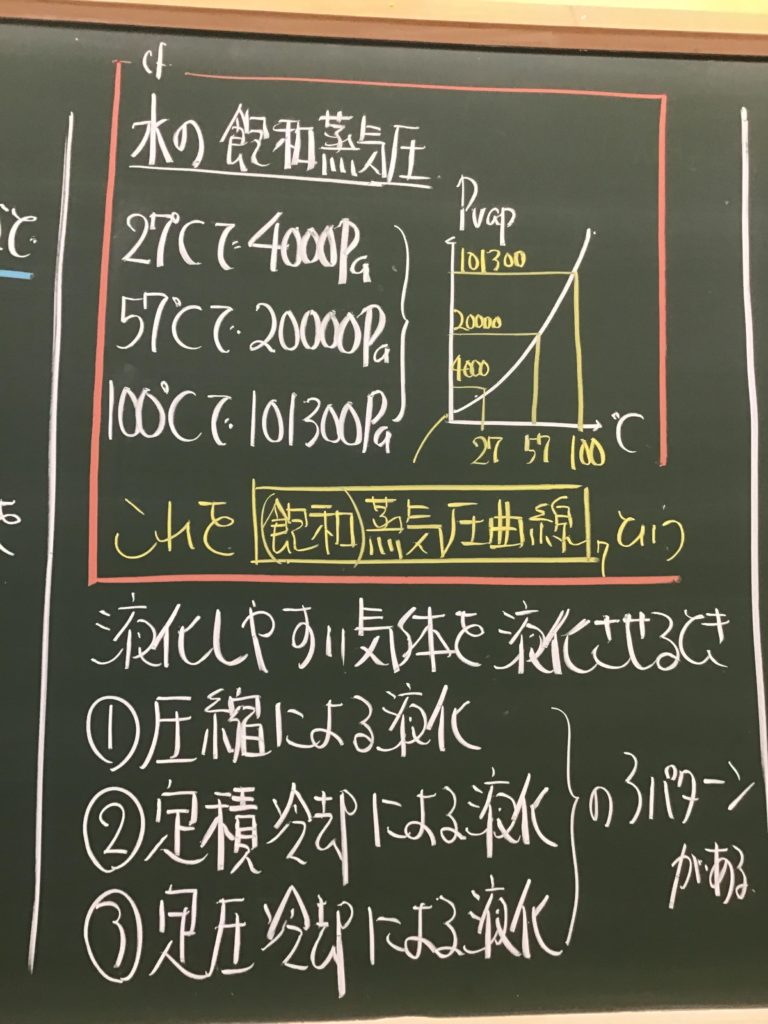 cf
水の飽和蒸気圧
27℃で4000Pa
57℃で20000Pa
100℃で101300Pa
Pvap
101300
20000
4000
27 57 100 ℃
これを(飽和)蒸気圧曲線,という
液化しやすい気体を液化させるとき
①圧縮による液化
②定積冷却による液化
③定圧冷却による液化
の3パターン
がある
と
を